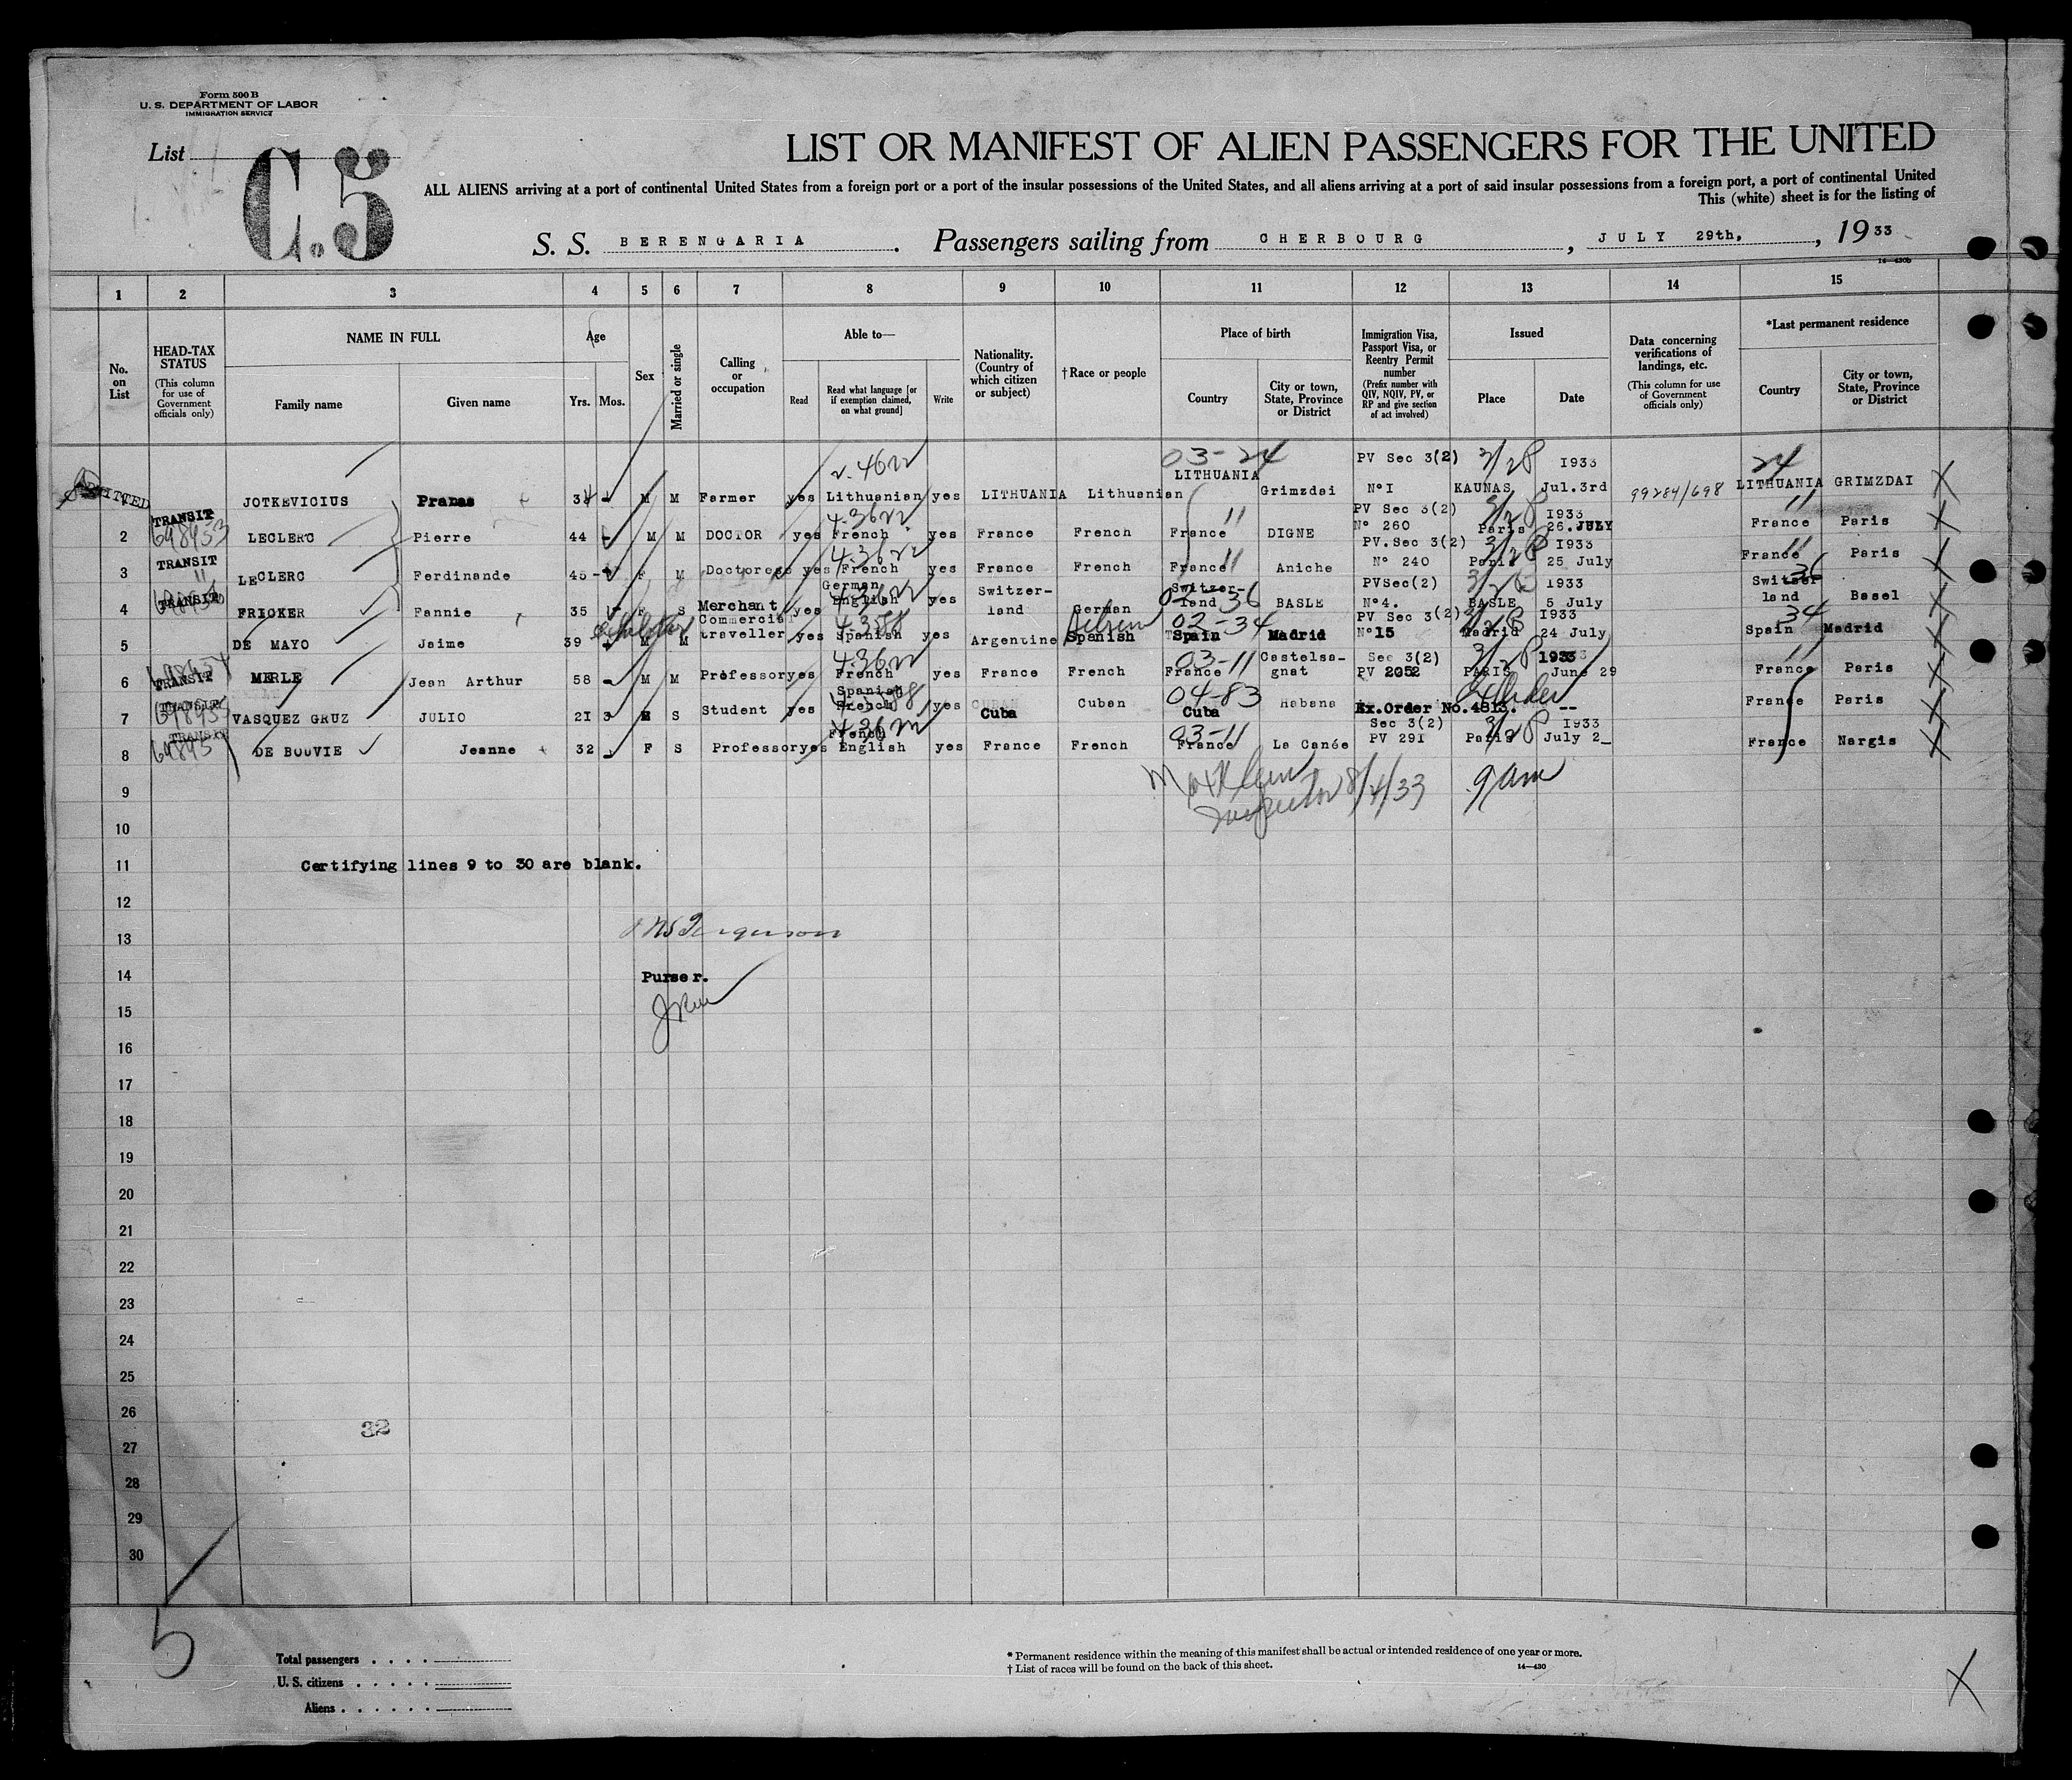 Form 500 B
U. S. DEPARTMENT OF LABOR
IMMIGRATION SERVICE
List
C.5
LIST OR MANIFEST OF ALIEN PASSENGERS FOR THE UNITED
ALL ALIENS arriving at a port of continental United States from a foreign port or a port of the insular possessions of the United States, and all aliens arriving at a port of said insular possessions from a foreign port, a port of continental United
This (white) sheet is for the listing of
S. S. BERENGARIA. Passengers sailing from CHERBOURG, JULY 29th, , 19 33
14—430b
1 2 3 4 5 6 7 8 9 10 11 12 13 14 15
No. on List
HEAD-TAX STATUS
(This column for use of Government officials only)
NAME IN FULL
Family name
Given name
Age
Yrs.
Mos.
Sex
Married or single
Calling or occupation
Able to—
Read
Read what language [or if exemption claimed, on what ground]
Write
Nationality. (Country of which citizen or subject)
†Race or people
Place of birth
Country
City or town, State, Province or District
Immigration Visa, Passport Visa, or Reentry Permit number
(Prefix number with QIV, NQIV, PV, or RP and give section of act involved)
Issued
Place
Date
Data concerning verifications of landings, etc.
(This column for use of Government officials only)
*Last permanent residence
Country
City or town, State, Province or District
ADMITTED JOTKEVICIUS Pranas 34 - M M Farmer yes Lithuanian yes LITHUANIA Lithuanian LITHUANIA Grimzdai PV Sec 3(2) N°I KAUNAS I933 Jul.3rd 99284/698 LITHUANIA GRIMZDAI
2 TRANSIT LECLERC Pierre 44 - M M DOCTOR yes French yes France French France DIGNE PV Sec 3(2) N° 260 Paris I933 26.JULY France Paris
3 TRANSIT LECLERC Ferdinande 45 - F M Doctoress yes French yes France French France Aniche PV.Sec 3(2) N° 240 Paris I933 25 July France Paris
4 TRANSIT FRICKER Fannie 35 F S Merchant yes German English yes Switzer-land German Switzer-land BASLE PVSec(2) N°4. BASLE 1933 5 July Switzer land Basel
5 DE MAYO Jaime 39 M M Commercial traveller yes Spanish yes Argentine Spanish Spain Madrid PV Sec 3(2) N°15 Madrid I933 24 July Spain Madrid
6 TRANSIT MERLE Jean Arthur 58 - M M Professor yes French yes France French France Castelsa-gnat Sec 3(2) PV 2052 PARIS 1933 June 29 France Paris
7 TRANSIT VASQUEZ GRUZ JULIO 2I 3 M S Student yes Spanish French yes Cuba Cuban Cuba Habana Ex.Order No.4813. -- France Paris
8 TRANSIT DE BOUVIE Jeanne 32 - F S Professor yes French English yes France French France La Canée Sec 3(2) PV 29I Paris I933 July 2_ France Nargis
9
8/4/33 9 am
10
11 Certifying lines 9 to 30 are blank.
12
13 Ferguson
14 Purser.
15
16
17
18
19
20
21
22
23
24
25
26
32
27
28
29
30
5
Total passengers
U. S. citizens
Aliens
* Permanent residence within the meaning of this manifest shall be actual or intended residence of one year or more.
† List of races will be found on the back of this sheet.
14—430
X